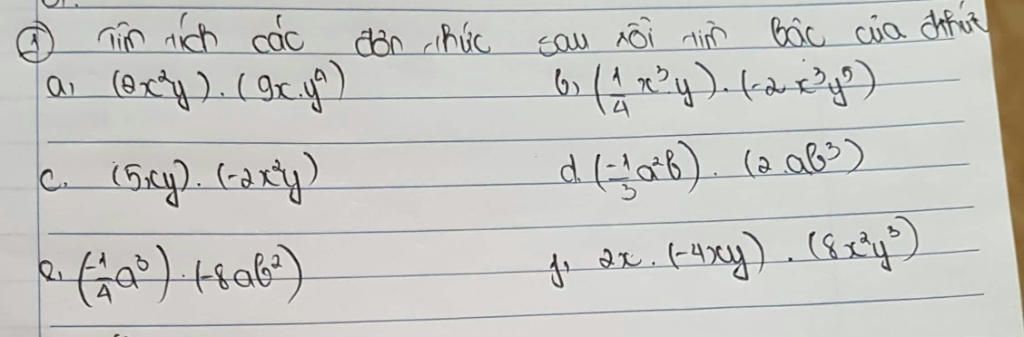 ① Tìm tích các đơn thức sau rồi tìm bậc của đthức
a, (2x²y).(9x.y⁴) b, (1/4 x³y).(-2x³y⁵)
c. (5xy).(-2x²y) d. (-1/3 a²b).(2.ab³)
e, (-1/4 a³).(-8ab²) f, 2x.(-4xy).(8x²y³)